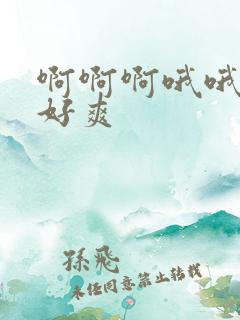 啊啊啊哦哦
好爽
孫飛
未经同意禁止转载